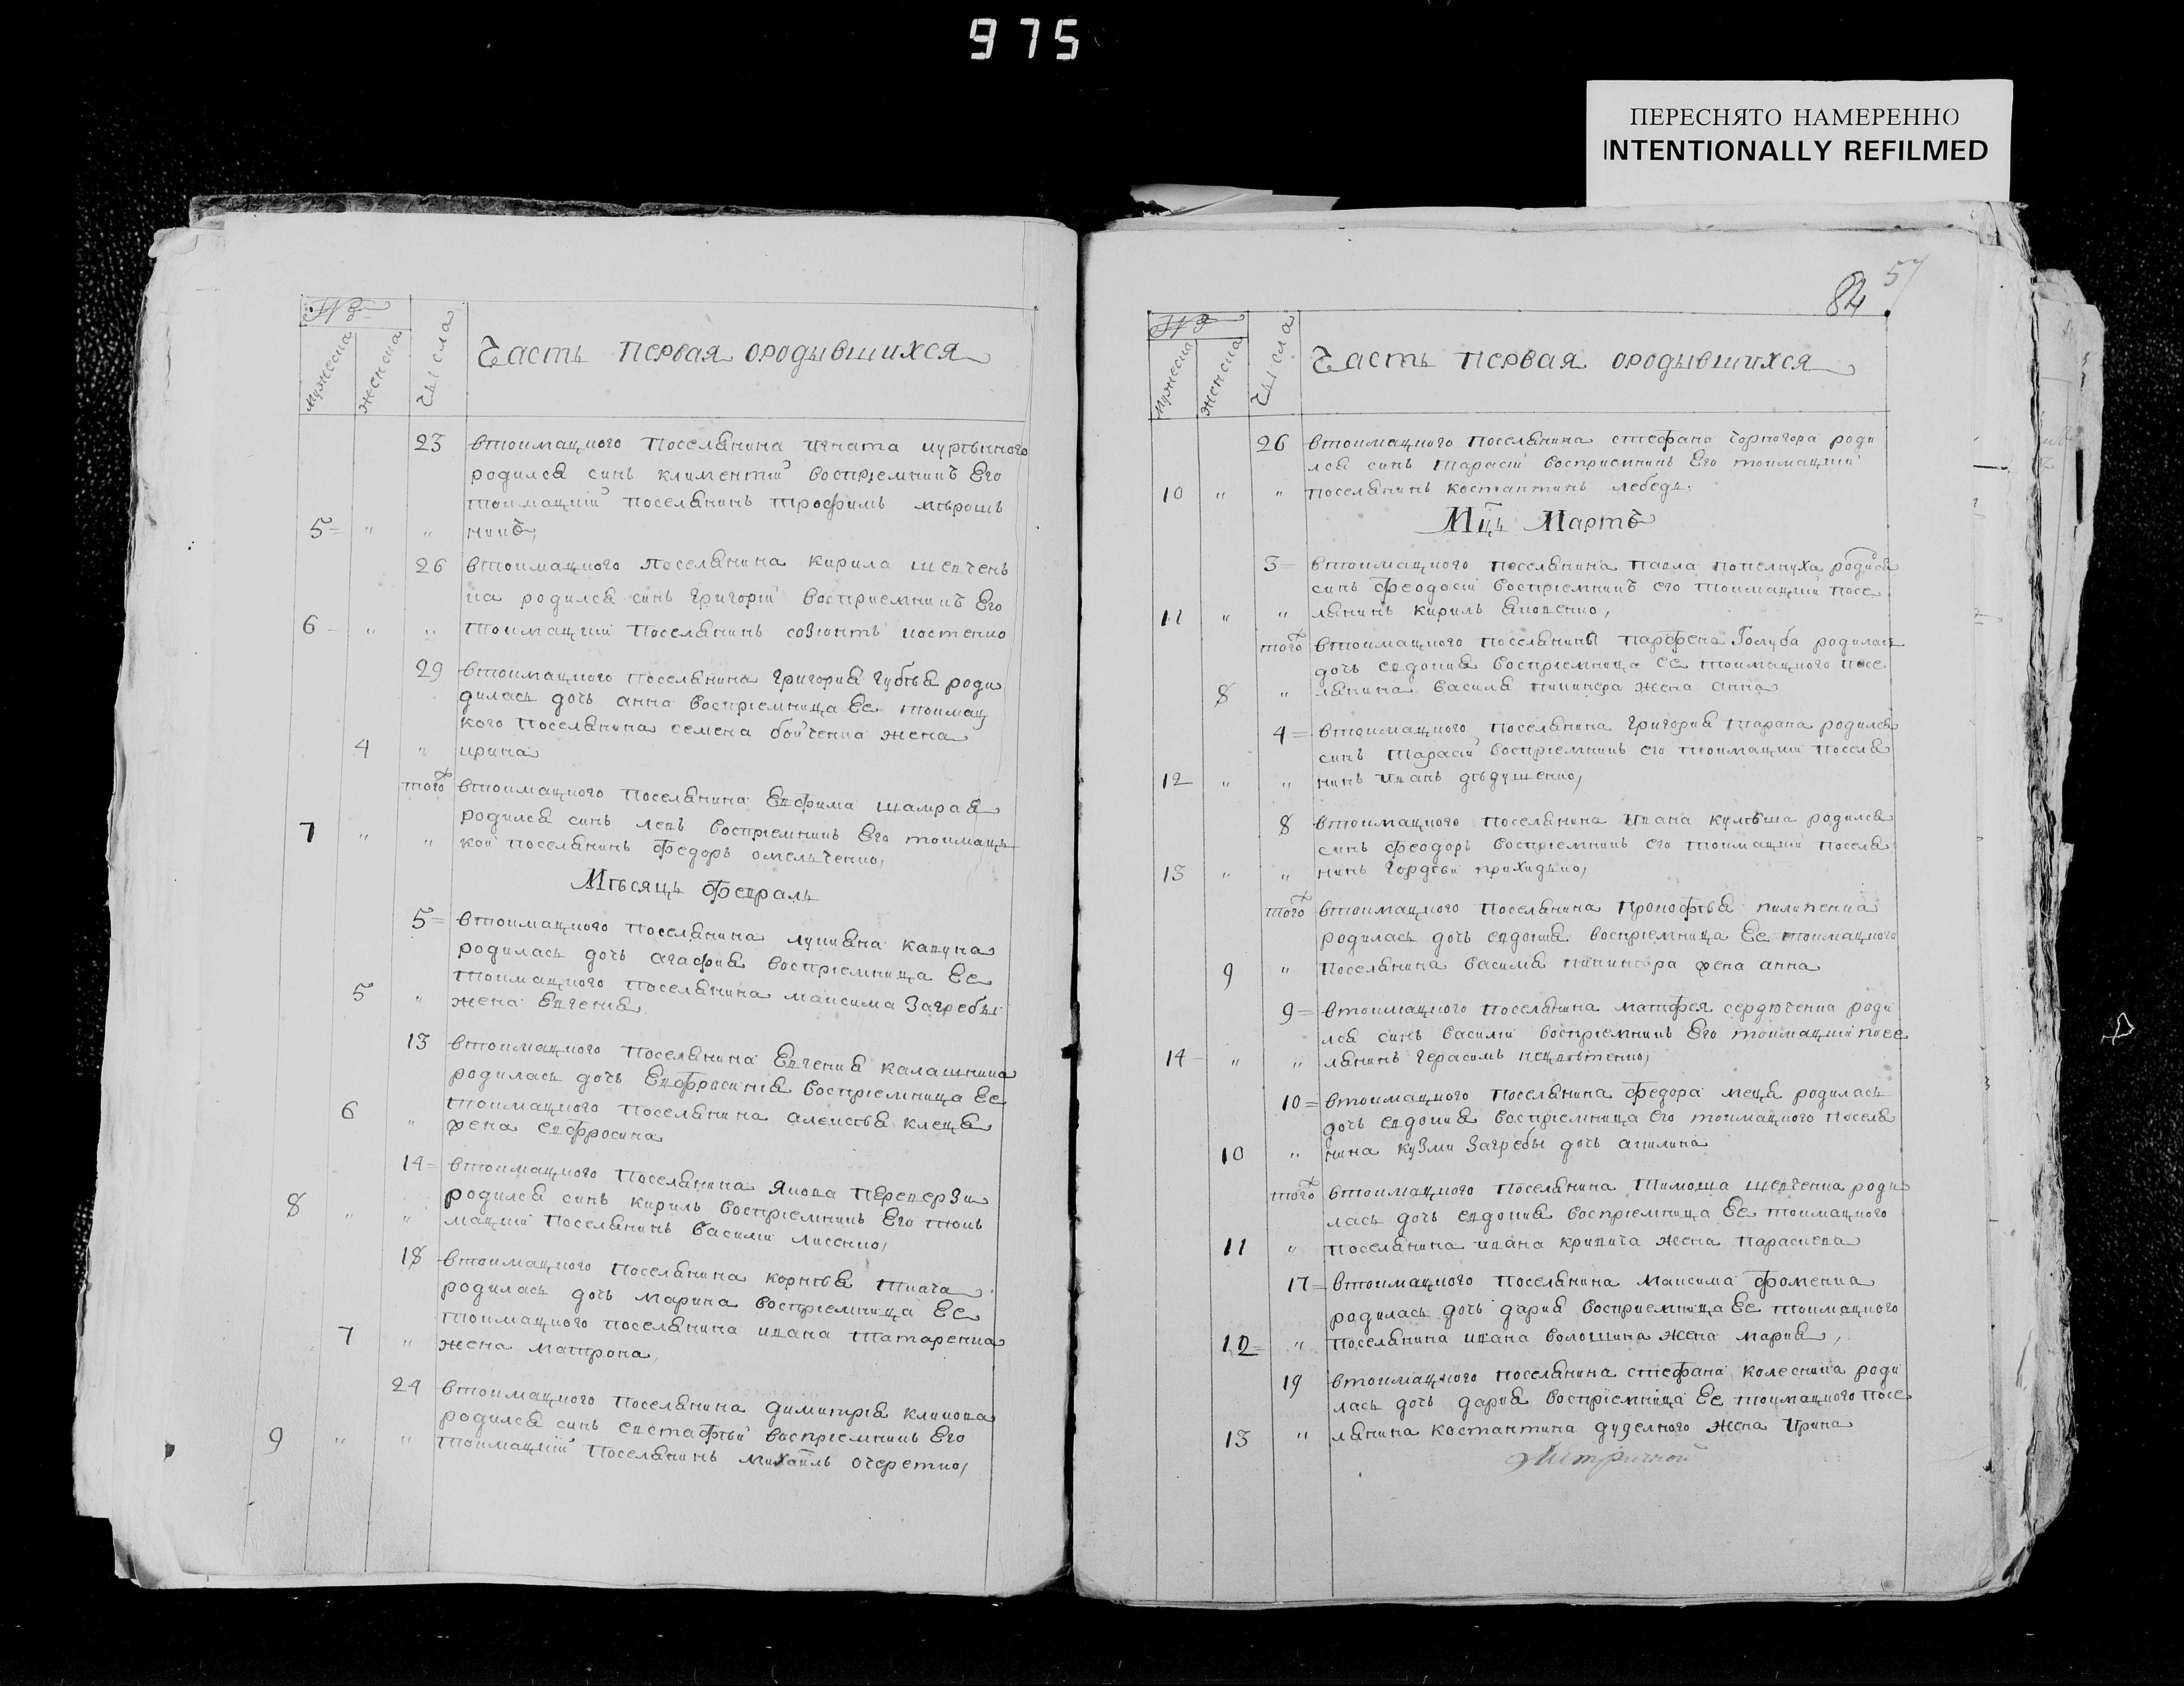 975
ПЕРЕСНЯТО НАМЕРЕННО
INTENTIONALLY REFILMED
№
мужеска
женска
Числа
Часть Первая ородывшихся
23 втокмацкого Поселянина игната
родился синь климентій воспріемникъ Его
токмацкій Поселянинъ трофимъ мѣрош
5 " " никъ,
26 втокмацкого Поселянина Кирила шевчен
ка родился синь Григорій воспріемникъ Его
6 " " токмацкій Поселянинъ созонтъ костенко
29 втокмацкого Поселянина Григорія Губѣя роди
дилась дочъ анна воспріемница Ее токмац
кого Поселянина семена бойченка жена
4 " ирина
того втокмацкого Поселянина Евфима шамрая
родился синь левъ воспріемникъ Его токмац
7 " " кой поселянинъ Федоръ омельченко,
Мѣсяцъ Февраль
5 втокмацкого Поселянина лукияна кавуна
родилась дочъ агафия воспріемница Ее
токмацкого Поселянина максима Загребы
5 " жена Евгения
13 втокмацкого Поселянина Евгения калашника
родилась дочъ Евфросиния воспріемница Ее
токмацкого Поселянина алексѣя клеца
6 " жена евфросина
14 втокмацкого Поселянина Якова Переверзи
родился синь кирилъ воспріемникъ Его ток
8 " " мацкій Поселянинъ Василій лисенко,
18 втокмацкого Поселянина корнѣя ткача
родилась дочъ Марина воспріемница Ее
токмацкого поселянина ивана татаренка
7 " жена матрона,
24 втокмацкого Поселянина Димитрія клокова
родился синь евстафѣй воспріемникъ Его
9 " " токмацкій Поселянинъ михаилъ очеретко,
57
84
№
мужеска
женска
Числа
Часть Первая ородывшихся
26 втокмацкого поселянина стефана чорногора роди
лся синь тарасій воспріемникъ Его токмацкій
10 " " поселянинъ костантинъ лебедь.
Мцъ Мартъ
3 втокмацкого поселянина Павла попелнуха родился
синь Феодосій воспріемникъ его токмацкій посе
11 " " лянинъ кирилъ яковенко,
того втокмацкого поселянины парфена Голуба родилась
дочъ евдокия воспріемница ее токмацкого посе
8 " лянина Василя жена анна
4 втокмацкого поселянина Григория тарана родился
синь тарасій воспріемникъ его токмацкій Поселя
12 " " нинъ иванъ дѣдушенко,
8 втокмацкого поселянина ивана кулѣша родился
синь феодоръ воспріемникъ его токмацкій поселя
13 " " нинъ Гордѣй приходько,
того втокмацкого Поселянина Прокофѣя пилипенка
родилась дочъ евдокия воспріемница Ее токмацкого
9 " Поселянина Василя жена анна
9 втокмацкого поселянина матфея сердюченка роди
лся синь Василій воспріемникъ Его токмацкій посе
14 " " лянинъ Герасимъ нецвѣтенко,
10 втокмацкого Поселянина Федора меца родилась
дочъ евдокия воспріемница Его токмацкого поселя
10 " нина кузми Загребы дочъ акилина
того втокмацкого Поселянина Тимоша шевченка роди
лась дочъ евдокия воспріемница Ее токмацкого
11 " поселянина ивана кривича жена Параскева
17 втокмацкого Поселянина Максима фоменка
родилась дочъ дария воспріемница Ее токмацкого
12 " поселянина ивана волошина жена мария,
19 втокмацкого поселянина стефана колесника роди
лась дочъ дария воспріемница Ее токмацкого посе
13 " лянина костантина дуделного жена Ирина
Метричной